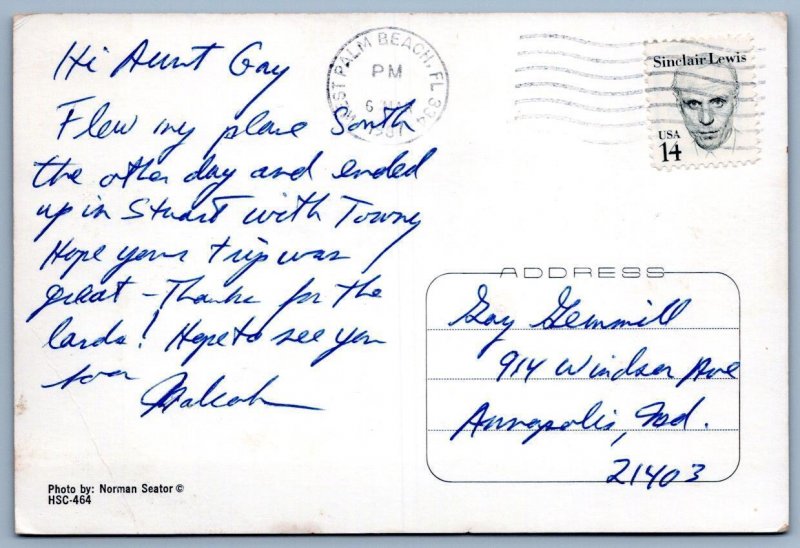 Hi Aunt Gay
Flew my plane South
the other day and ended
up in Stuart with Towny
Hope your trip was
great - Thanks for the
cards! Hope to see you
soon
Malcolm
Photo by: Norman Seator ©
HSC-464
WEST PALM BEACH, FL 334
PM
6
1987
Sinclair Lewis
USA
14
ADDRESS
Gay Gemmill
914 Windsor Ave
Annapolis, Md.
21403